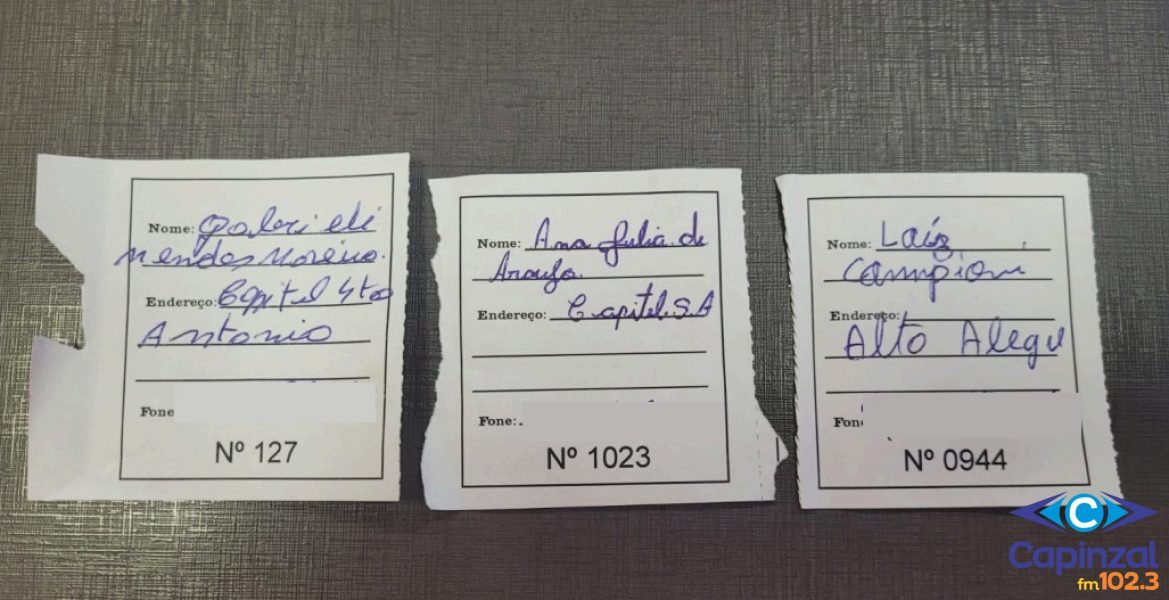 Nome: Gabrieli
Mendes Moreira.
Endereço: Capitel Sto
Antonio
Fone
Nº 127
Nome: Ana Julia de
Araujo
Endereço: Capitel. S. A
Fone:.
Nº 1023
Nome: Laíz
Campioni
Endereço:
Alto Alegre
Fone
Nº 0944
C
Capinzal
fm 102.3